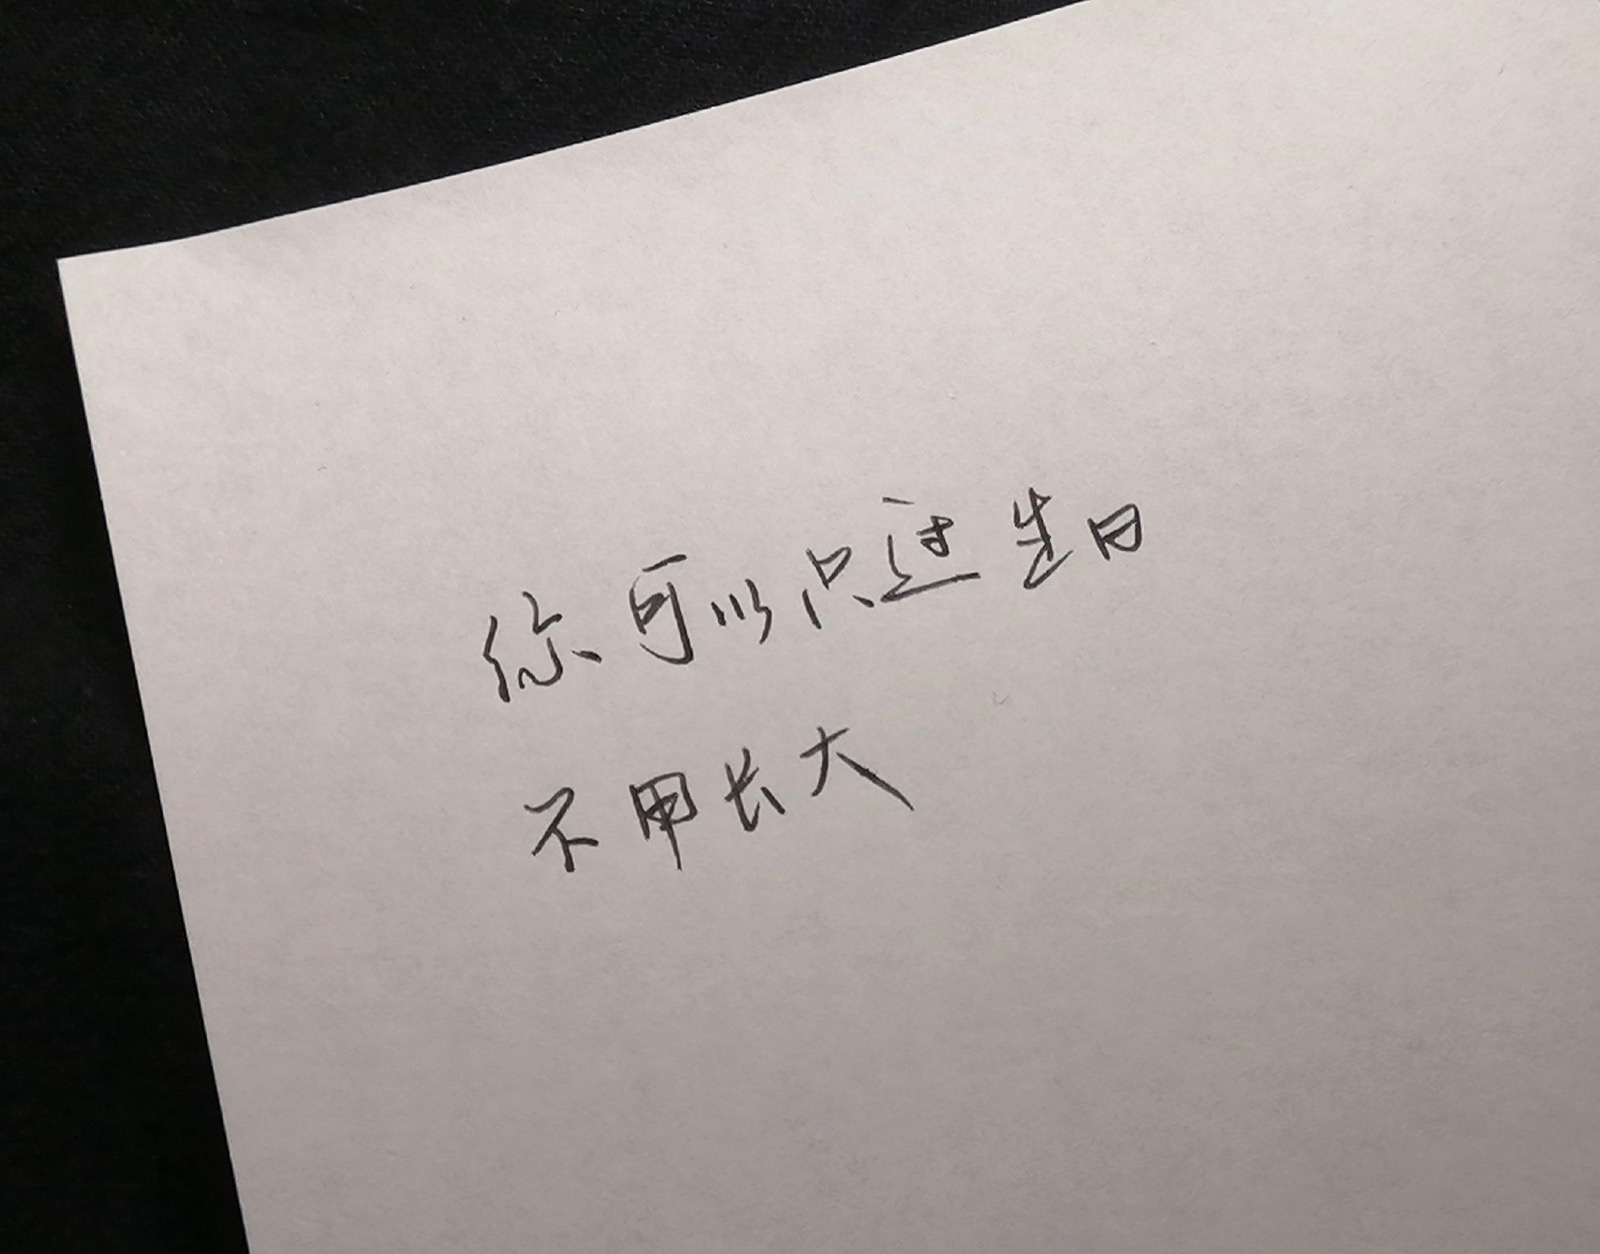 你可以只过生日
不用长大